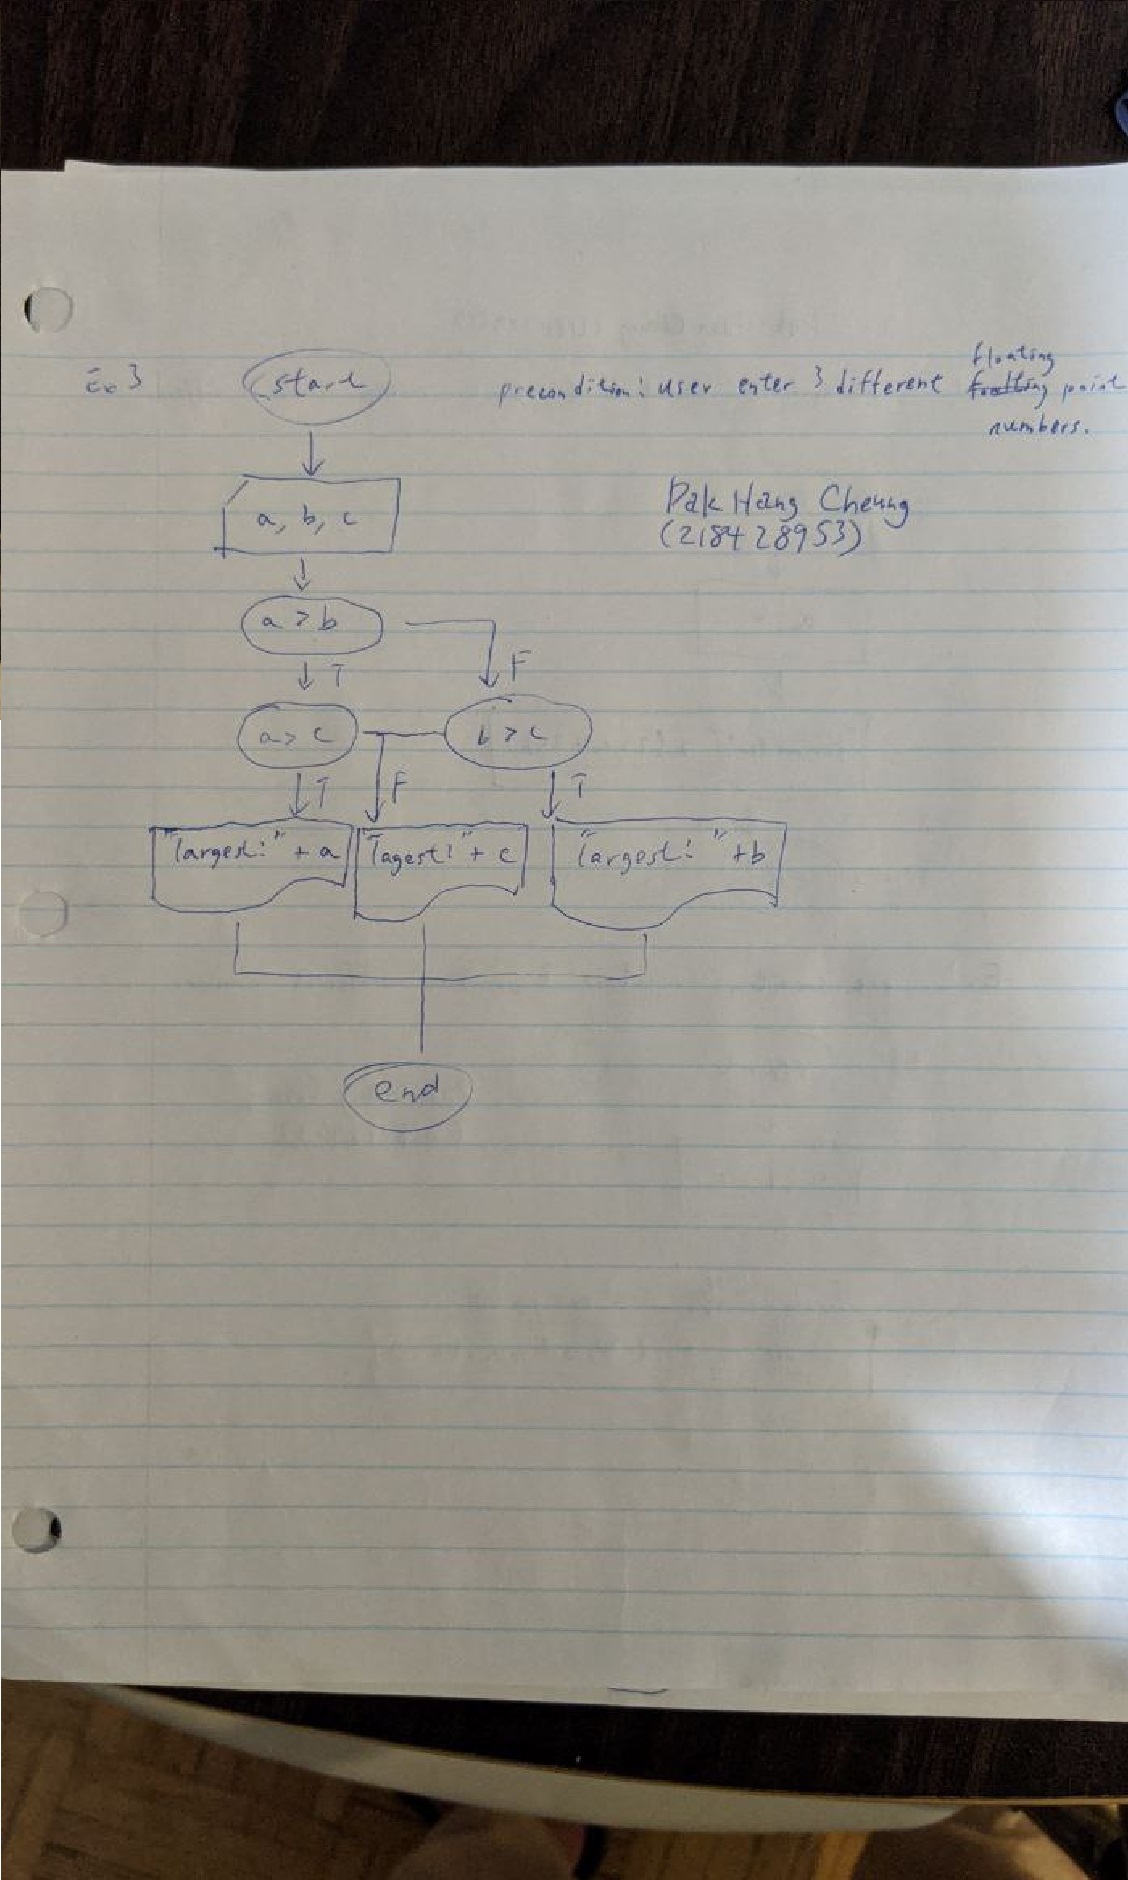 Ex 3
start
precondition: user enter 3 different floating point
numbers.
a, b, c
Pak Hang Cheung
(218428953)
a > b
T
F
a > c
b > c
T
F
T
"largest: " + a
"lagest: " + c
"largest: " + b
end